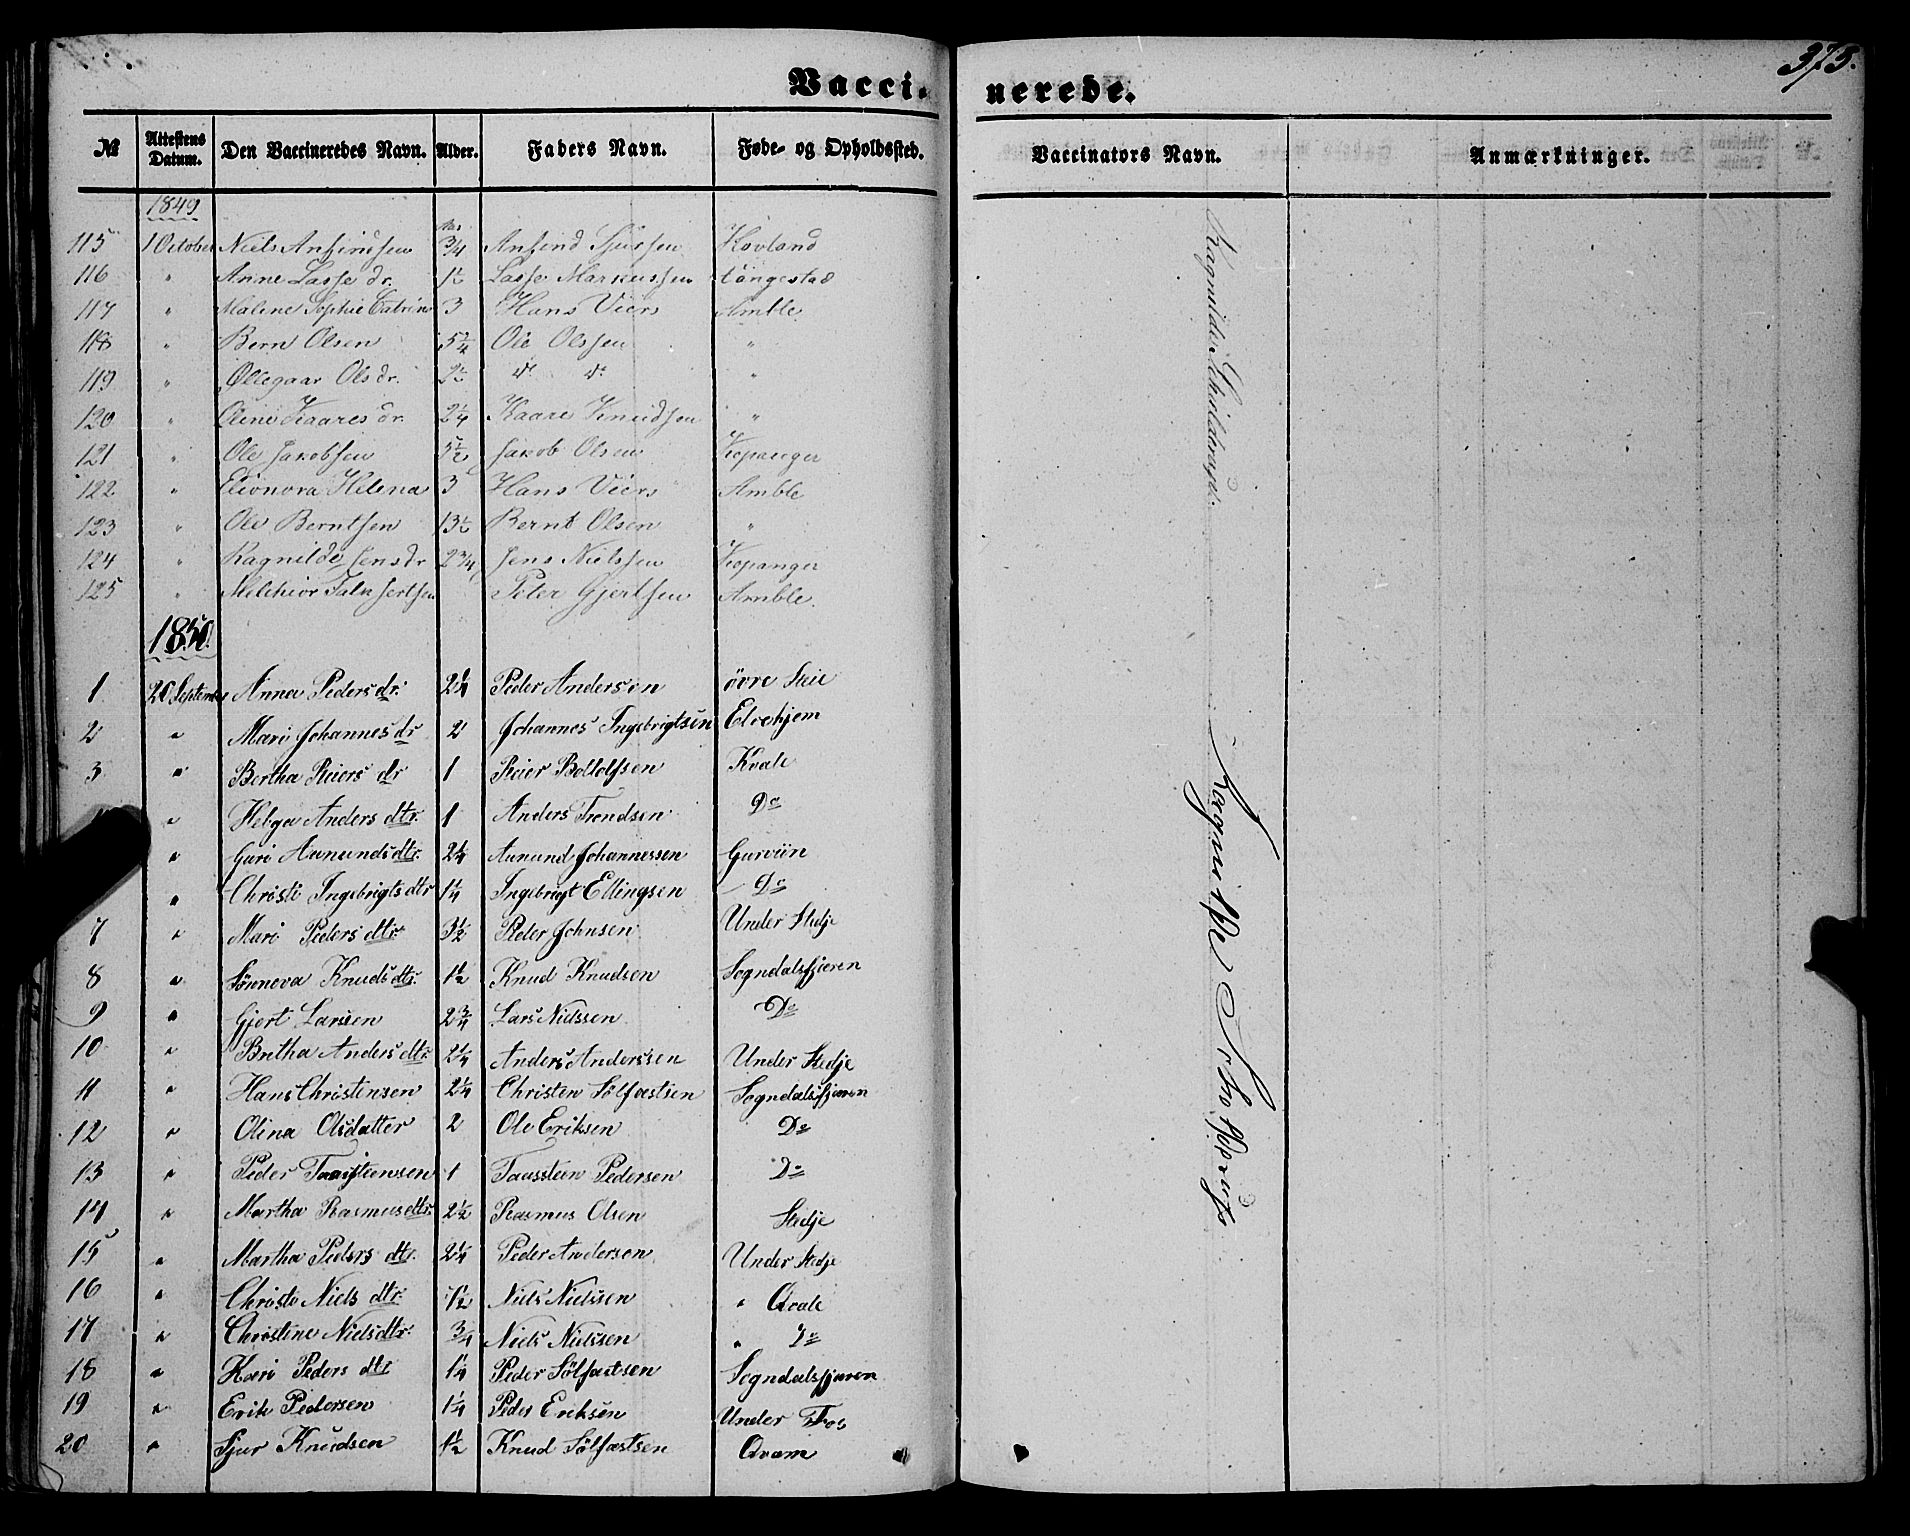 373.
Vacci-nerede.
№ Attestens Datum. Den Vaccineredes Navn. Alder. Faders Navn. Føde- og Opholdssted. Vaccinators Navn. Anmærkninger.
1849
115 1 October Niels Anfindsen 3/4 Anfind Hovland
116 " Anne Lasse dr. 1½ Lasse Markussen
117 " Malene Sophie Catrine 3 Hans Viers Amble
118 " Bern Olsen Ole Olssen "
119 " Øllegaar Olsdr. 2½ do do "
120 " Oline Kaares dr. 2¼ Kaare Knudsen "
121 " Ole Jakobsen 5½ Jakob Olsen Kopanger
122 " Eleonora Helena 3 Hans Viers Amble
123 " Ole Berntsen 13½ Bernt Olsen "
124 " Ragnilde Jensdr 2¾ Jens Nielssen Kopanger
125 " Melchior Falk Peter Gjertsen Amble.
1850.
1 20 September Anna Pedersdr. 2¼ Peder Andersen övre
2 " Mari Johannesdr 2 Johannes Ingebrigtsen Elvehjem
3 " Bertha Reiers dr 1 Reier Botlolfsen Kvale
" Helga Anders dtr. 1 Anders Trondsen Do
" Guri Aunundsdtr. 2¼ Aunund Johannessen Gurviin
" Christi Ingebrigts dtr 1¼ Ingebrigt Ellingsen Do
7 " Mari Peders dtr. 3½ Peder Johnsen Under Stedje
8 " Sönneva Knuds dtr. 1½ Knud Knudsen Sogndalsfjæren
9 " Gjert Larssen 2¾ Lars Nielssen Do
10 " Britha Anders dtr. 2¼ Anders Anderssen Under Stedje
11 " Hans Christensen 2¼ Christen Sölfæstsen Sogndalsfjæren
12 " Olina Olsdatter 2 Ole Eriksen Do
13 " Peder Taaisteensen 1 Taassteen Pedersen Do
14 " Martha Rasmusdtr. 2½ Rasmus Olsen Stedje
15 " Martha Peders dtr. 2¼ Peder Andersen Under Stedje
16 " Christi Niels dtr. 1½ Niels Nielssen " Qvale
17 " Christine Nielsdtr. ¾ Niels Nielssen " Do
18 " Kari Peders dtr 1¼ Peder Sölfæstsen Sogndalsfjæren
19 " Erik Pedersen 1¼ Peder Eriksen Under Fos
20 " Sjur Knudsen 1½ Knud Sölfæstsen Qvam